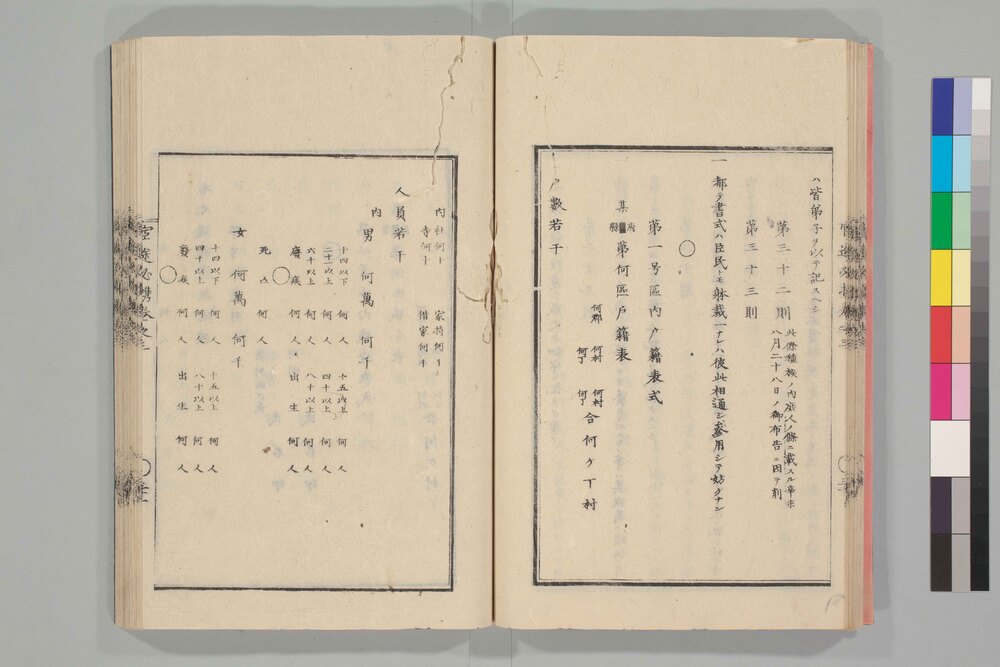 ハ皆弟子ヲ以テ記スヘシ
第三十二則
此條種族ノ内廃人ノ條ニ載スル辛未
八月二十八日ノ御布告ニ因テ削
第三十三則
一都テ書式ハ臣民トモ躰裁一ナレハ彼此相通シ参用シテ妨ケナシ
○
第一号區内戸籍表式
某府縣第何區戸籍表
何郡 何村 何村
何丁 何丁 合何ケ丁村
戸數若干
内 社何十 家持何千
寺何十 借家何千
人員若干
内
男 何萬何千
十四以下 何人 十五以上 何人
二十一以上 何人 四十以上 何人
六十以上 何人 八十以上 何人
廢疾 何人 出生 何人
○
死亡 何人
女 何萬何千
十四以下 何人 十五以上 何人
四十以上 何人 八十以上 何人
廢疾 何人 出生 何人
○